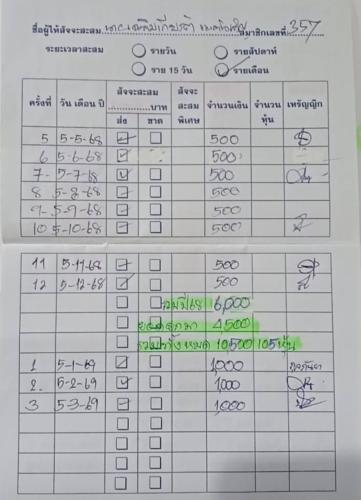 ชื่อผู้ให้สัจจะสะสม สมาชิกเลขที่ 357
ระยะเวลาสะสม รายวัน รายสัปดาห์
ราย 15 วัน รายเดือน
ครั้งที่ วัน เดือน ปี สัจจะสะสม ......บาท ส่ง ขาด สัจจะสะสมพิเศษ จำนวนเงิน จำนวนหุ้น เหรัญญิก
5 5-5-68 500
6 5-6-68 500
7- 5-7-68 500
8 5-8-68 500
9- 5-9-68 500
10 5-10-68 500
11 5-11-68 500
12 5-12-68 500
รวมปี68 6,000
4,500
รวมทั้งหมด 10,500 105หุ้น
1 5-1-69 1,000
2. 5-2-69 1,000
3 5-3-69 1,000